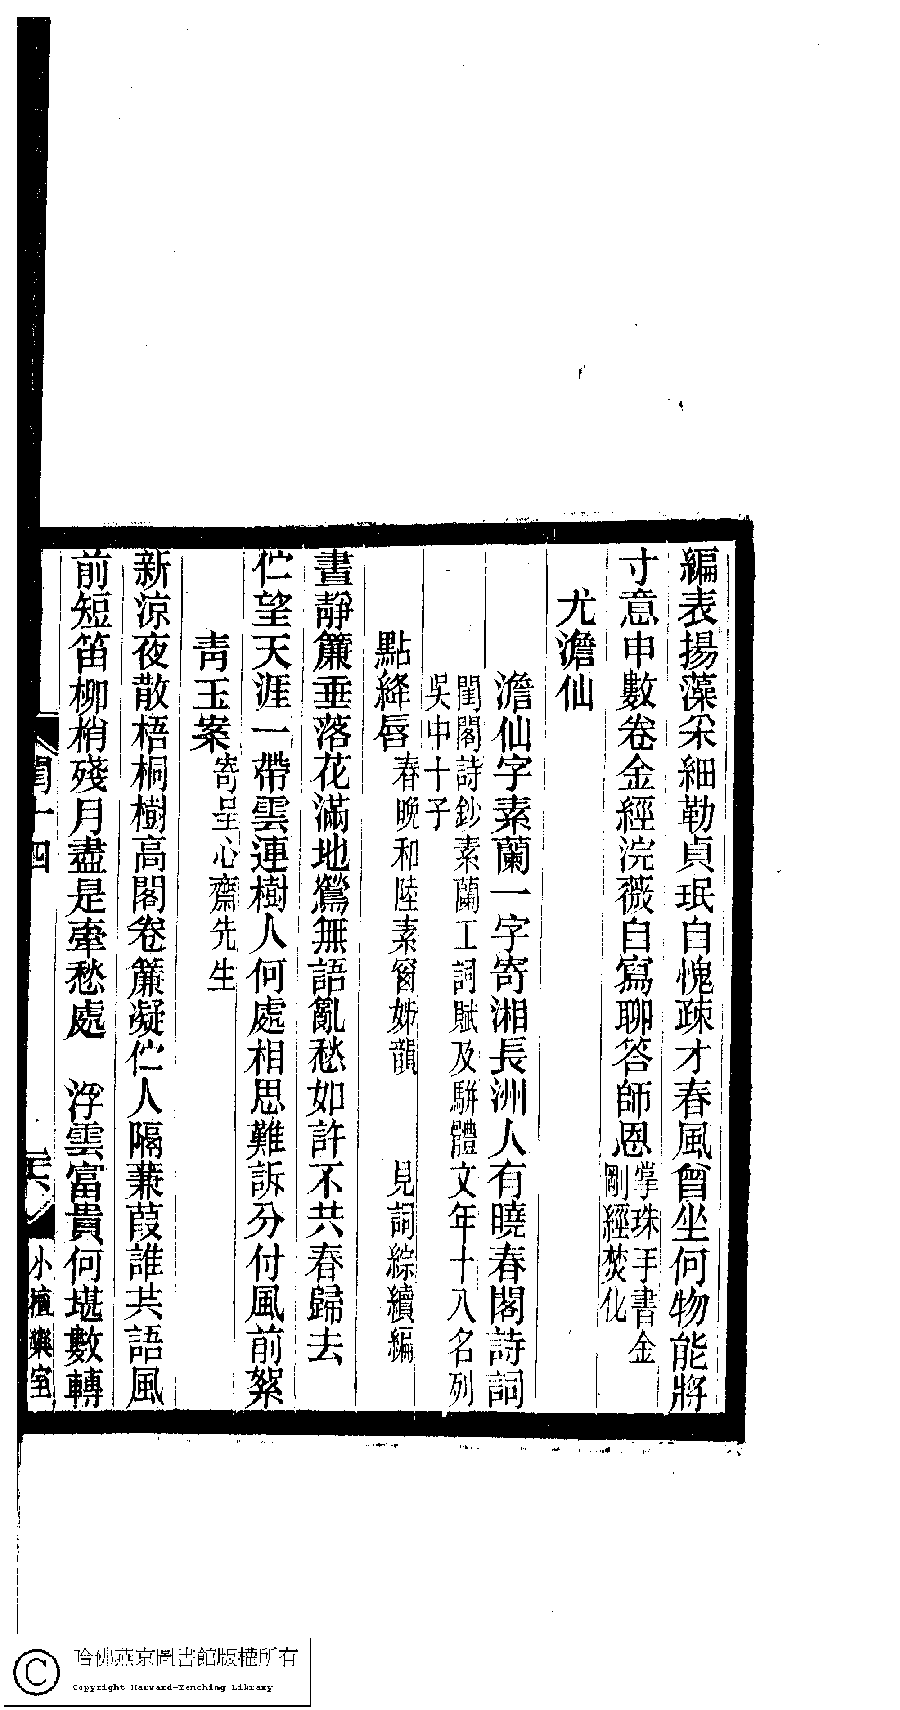 編表揚藻采細勒貞珉自愧疎才春風曾坐何物能將
寸意申數卷金經浣薇自寫聊答師恩掌珠手書金
剛經焚化
尤澹仙
澹仙字素蘭一字寄湘長洲人有曉春閣詩詞
閨閣詩鈔素蘭工詞賦及駢體文年十八名列
吳中十子
點絳唇春晚和陸素窗姊韻 見詞綜續編
晝靜簾垂落花滿地鶯無語亂愁如許不共春歸去
伫望天涯一帶雲連樹人何處相思難訴分付風前絮
靑玉案寄呈心齋先生
新涼夜散梧桐樹高閣卷簾凝伫人隔蒹葭誰共語風
前短笛柳梢殘月盡是牽愁處 浮雲富貴何堪數轉
閨十四
小檀欒室
哈佛燕京圖書館版權所有
Copyright Harvard-Yenching Library